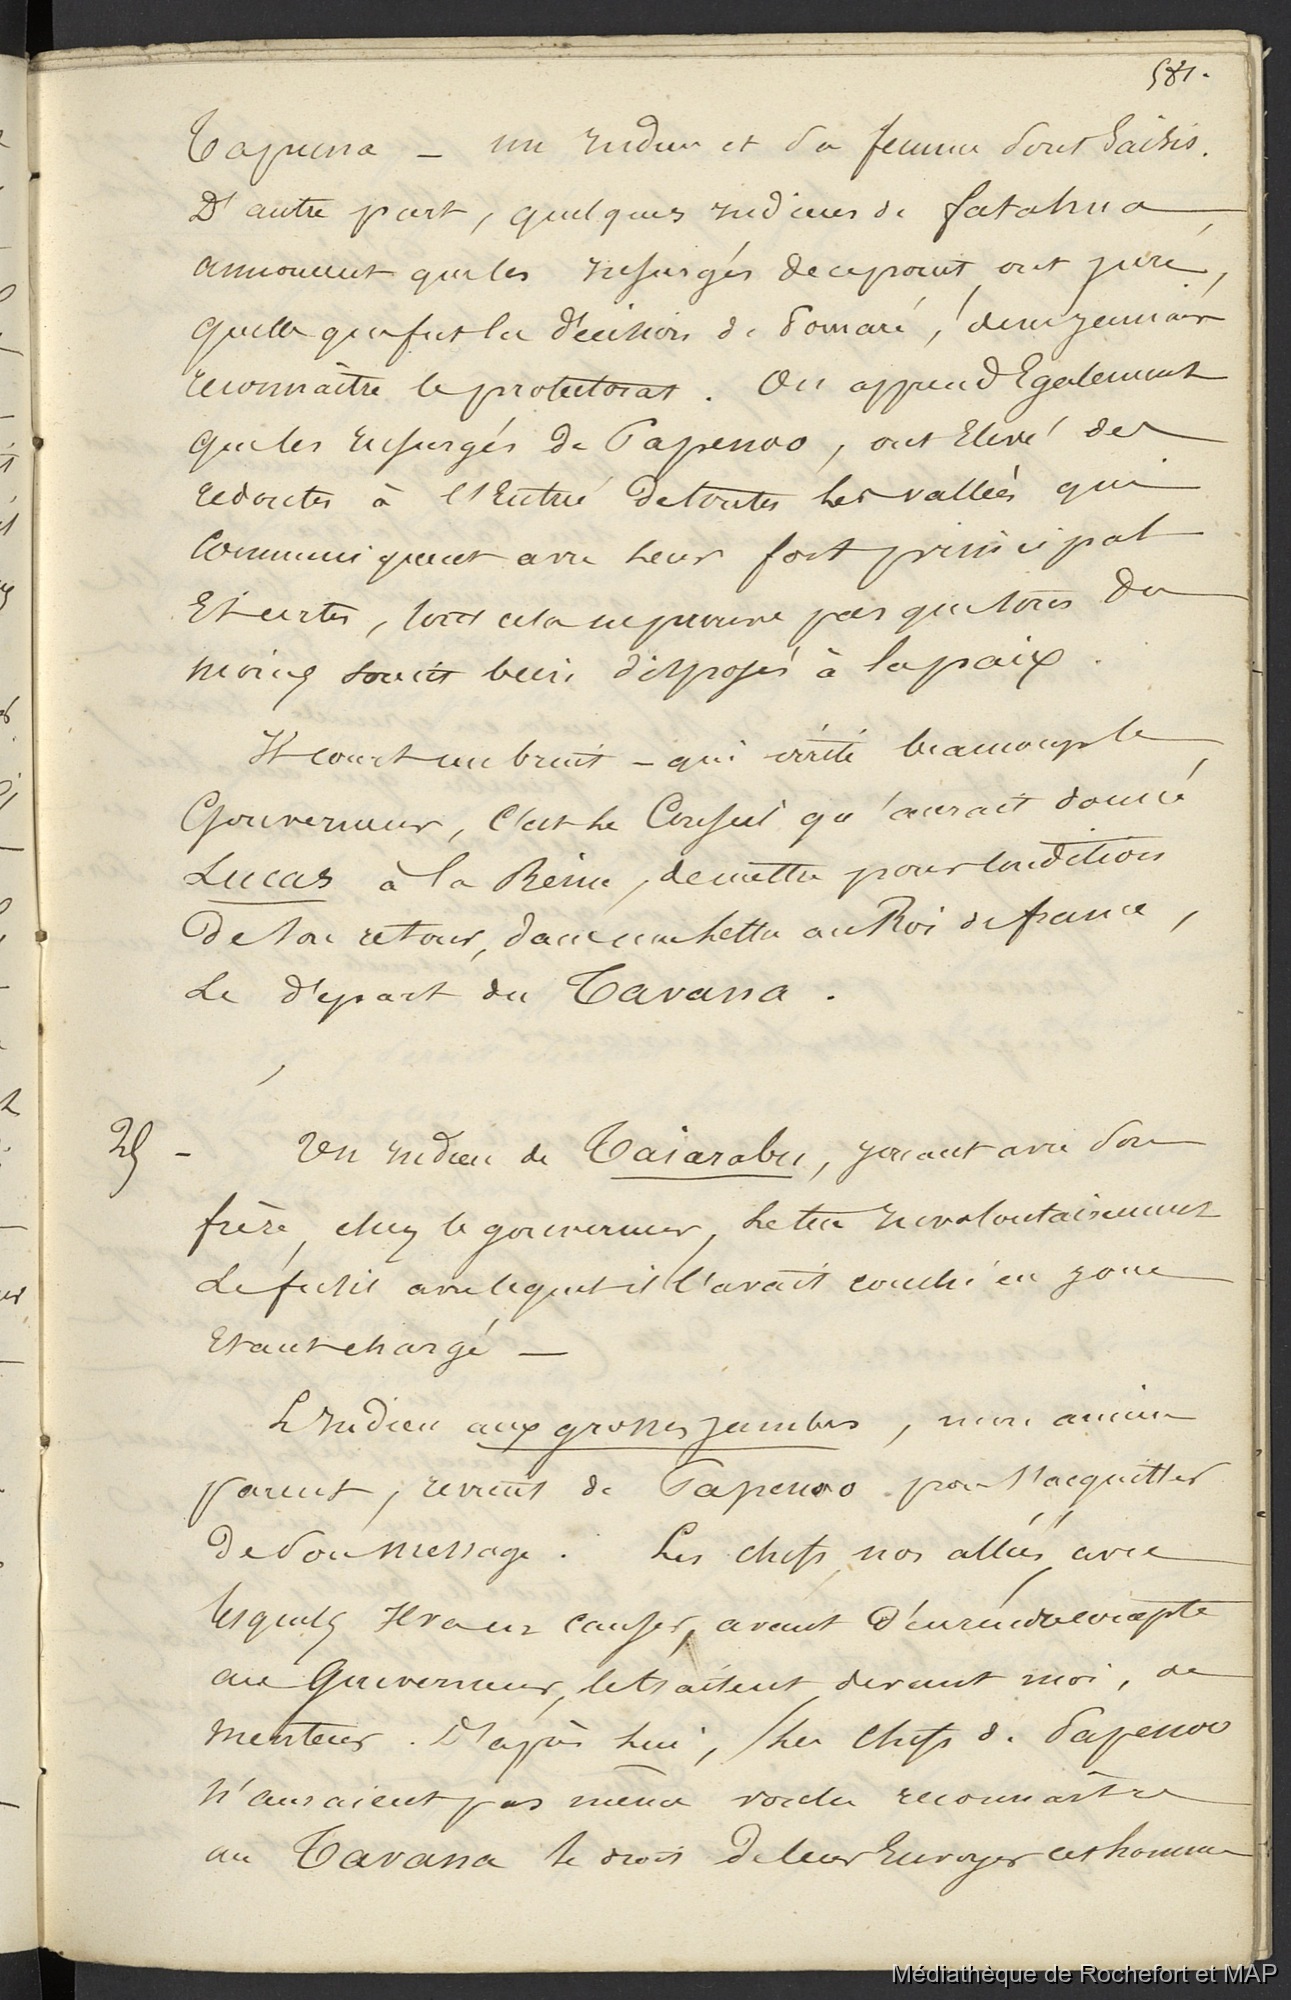 581.
Tapuna — un indien et sa femme sont saisis.
D'autre part, quelques indiens de fatahua,
annoncent que les insurgés de ce point, ont juré,
quelle que fut la décision de Pomaré, de ne jamais
reconnaître le protectorat. On apprend également
que les insurgés de Papenoo, ont élevé des
redoutes à l'entrée de toutes les vallées qui
communiquent avec leur fort principal
Et certes, tout cela ne prouve pas que tous du
moins soient bien disposés à la paix.
Il court un bruit - qui irrite beaucoup le
Gouverneur, c'est le Conseil qu'aurait donné
Lucas à la Reine, de mettre pour condition
de son retour, dans une lettre au Roi de france,
Le départ du Tavana.
25 - Un indien de Taiarabu, jouant avec son
frère, chez le gouverneur, le tue involontairement
Le fusil avec lequel il l'avait couché en joue
Etant chargé —
L'indien aux grosses jambes, mon ancien
parent, revient de Papenoo pour s'acquitter
de son message. Les chefs nos alliés, avec
lesquels il va en causer, avant d'en rendre compte
au Gouverneur, le traitent devant moi, de
menteur. D'après lui, les chefs de Papenoo
n'auraient pas même voulu reconnaître
au Tavana le droit de leur Envoyer cet homme
Médiathèque de Rochefort et MAP